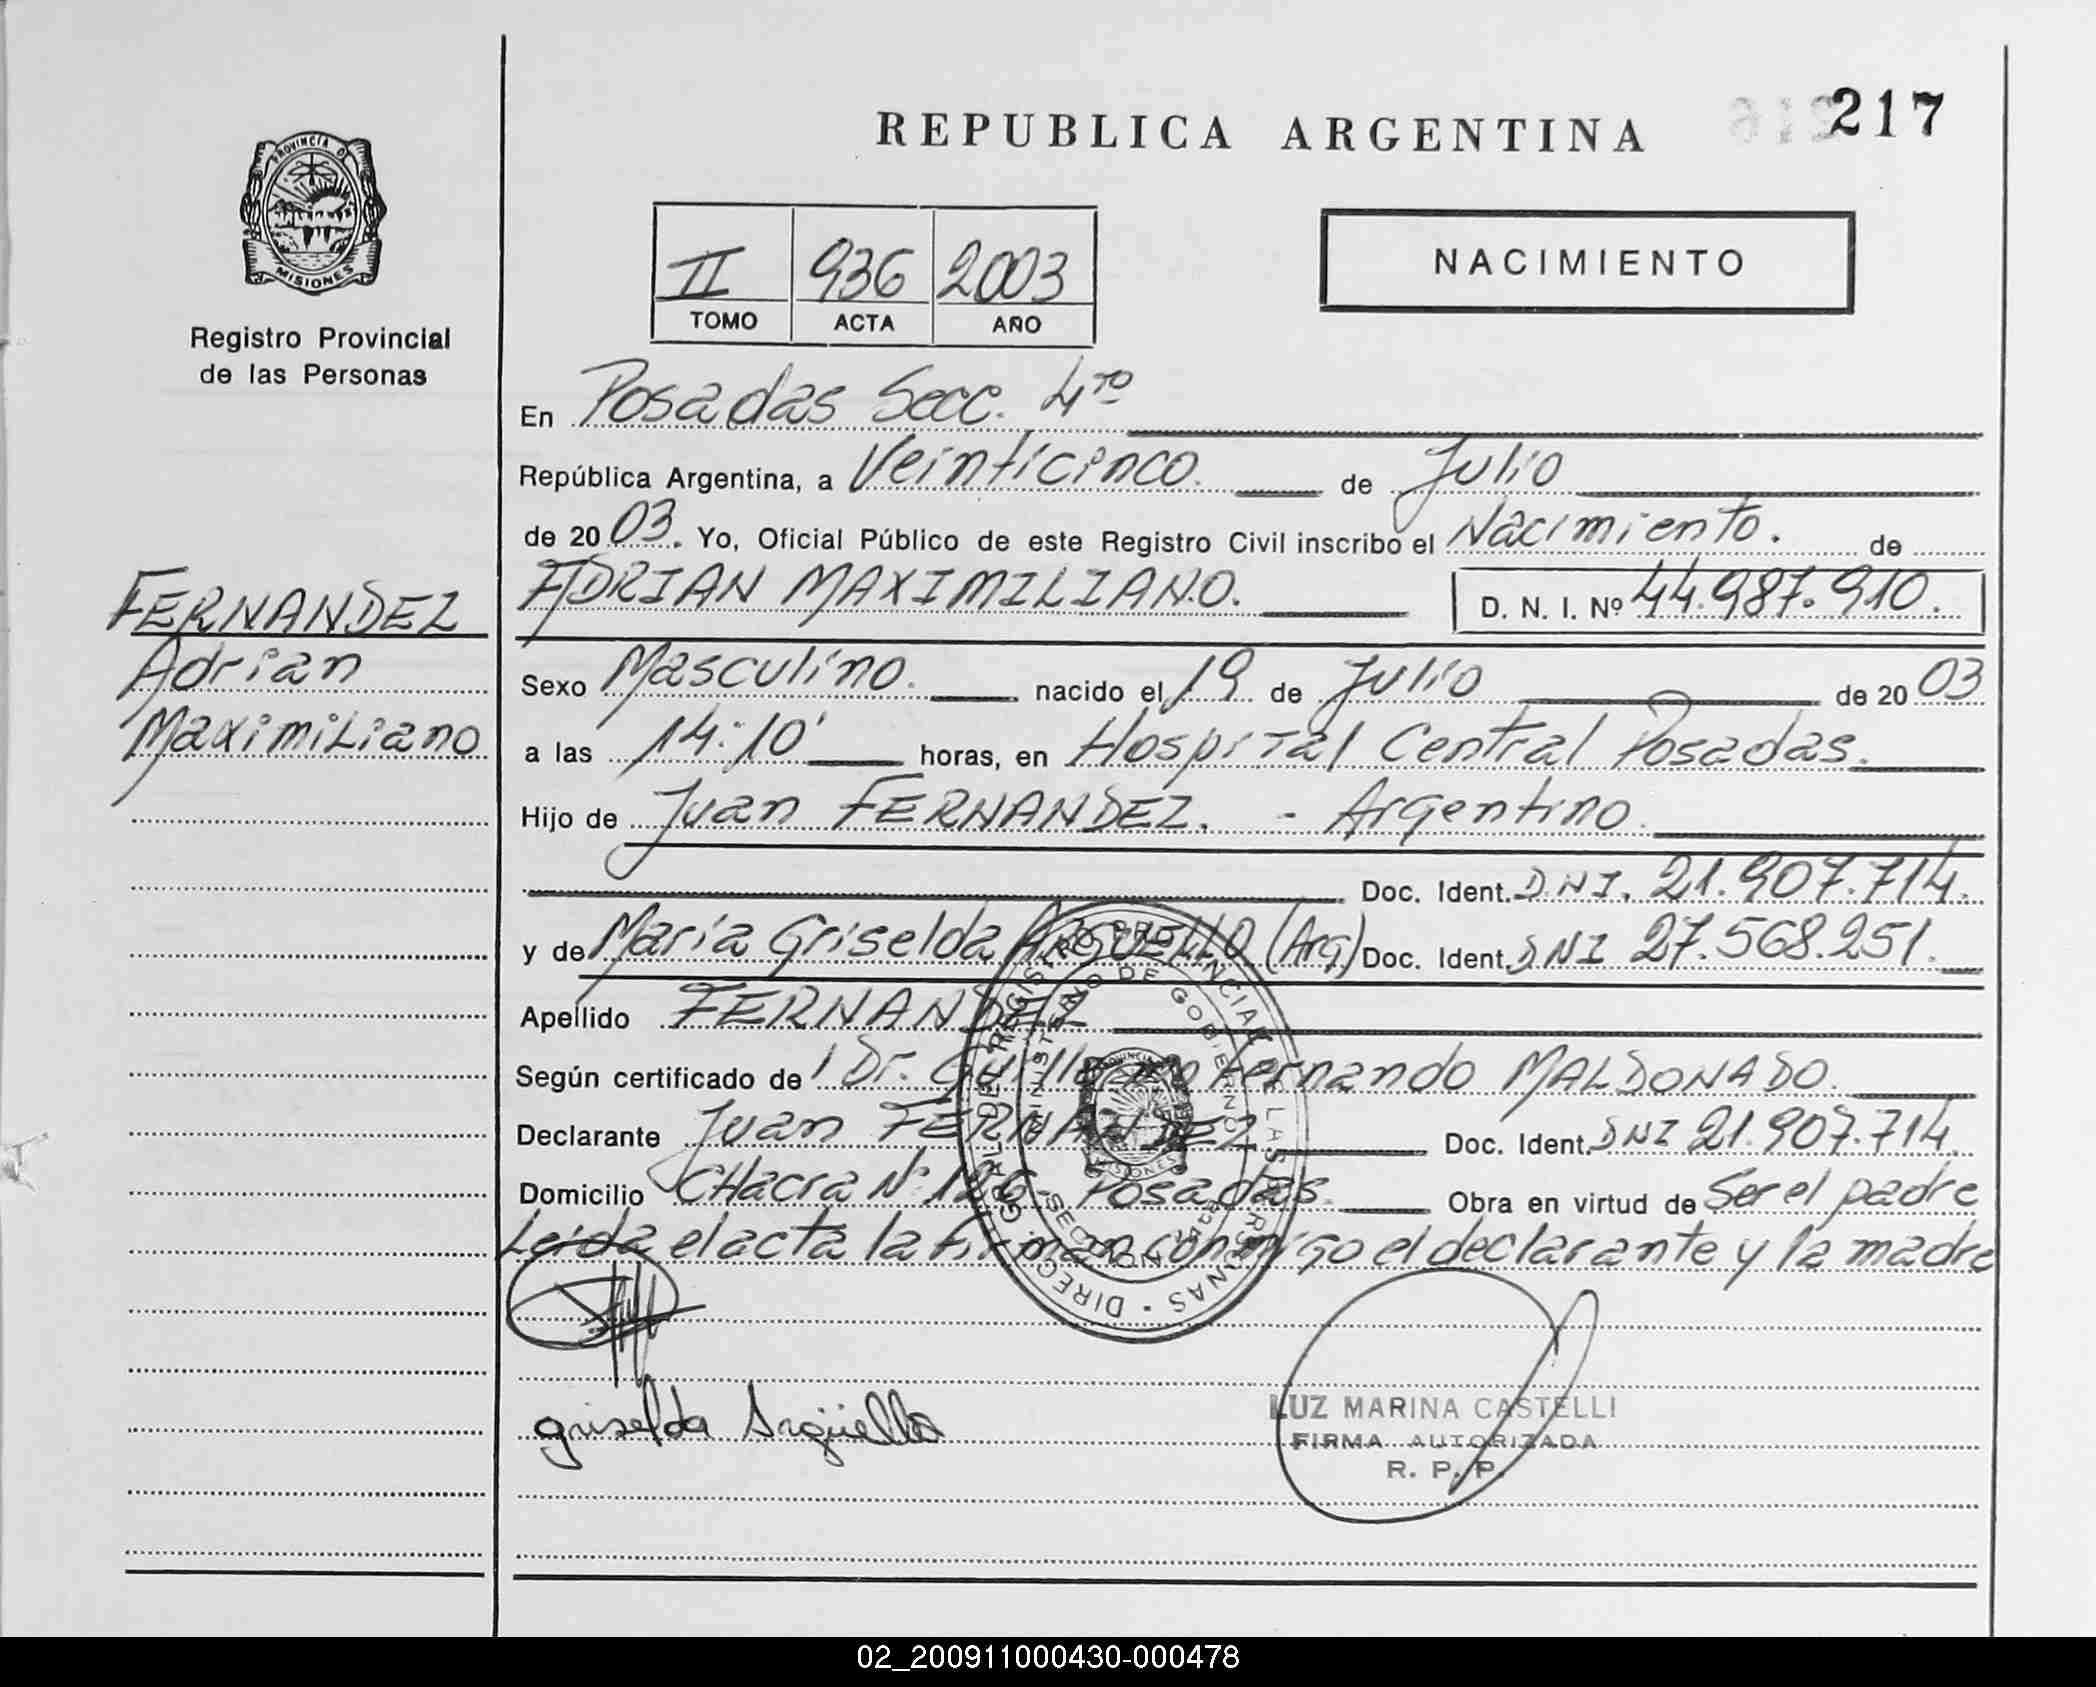 REPUBLICA ARGENTINA
217
PROVINCIA DE
MISIONES
Registro Provincial
de las Personas
II 936 2003
TOMO ACTA AÑO
NACIMIENTO
En Posadas Secc. 4ta
República Argentina, a Veinticinco. de Julio
de 2003. Yo, Oficial Público de este Registro Civil inscribo el Nacimiento. de
ADRIAN MAXIMILIANO. D. N. I. Nº 44.987.910.
FERNANDEZ
Adrian
Maximiliano
Sexo Masculino. nacido el 19 de Julio de 2003
a las 14:10' horas, en Hospital Central Posadas.
Hijo de Juan FERNANDEZ. - Argentino.
Doc. Ident. D.N.I. 21.907.714.
y de María Griselda ARGUELLO (Arg) Doc. Ident. DNI 27.568.251.
Apellido FERNANDEZ
Según certificado de Dr. Guillermo Fernando MALDONADO.
Declarante Juan FERNANDEZ Doc. Ident. DNI 21.907.714.
Domicilio CHacra Nº 126- Posadas. Obra en virtud de Ser el padre
Leída el acta la firman conmigo el declarante y la madre
DIREC. GRAL. DEL REGISTRO PROVINCIAL DE LAS PERSONAS
MINISTERIO DE GOBIERNO
MISIONES
SECCION
griselda Argüello
LUZ MARINA CASTELLI
FIRMA AUTORIZADA
R. P. P.
02_200911000430-000478